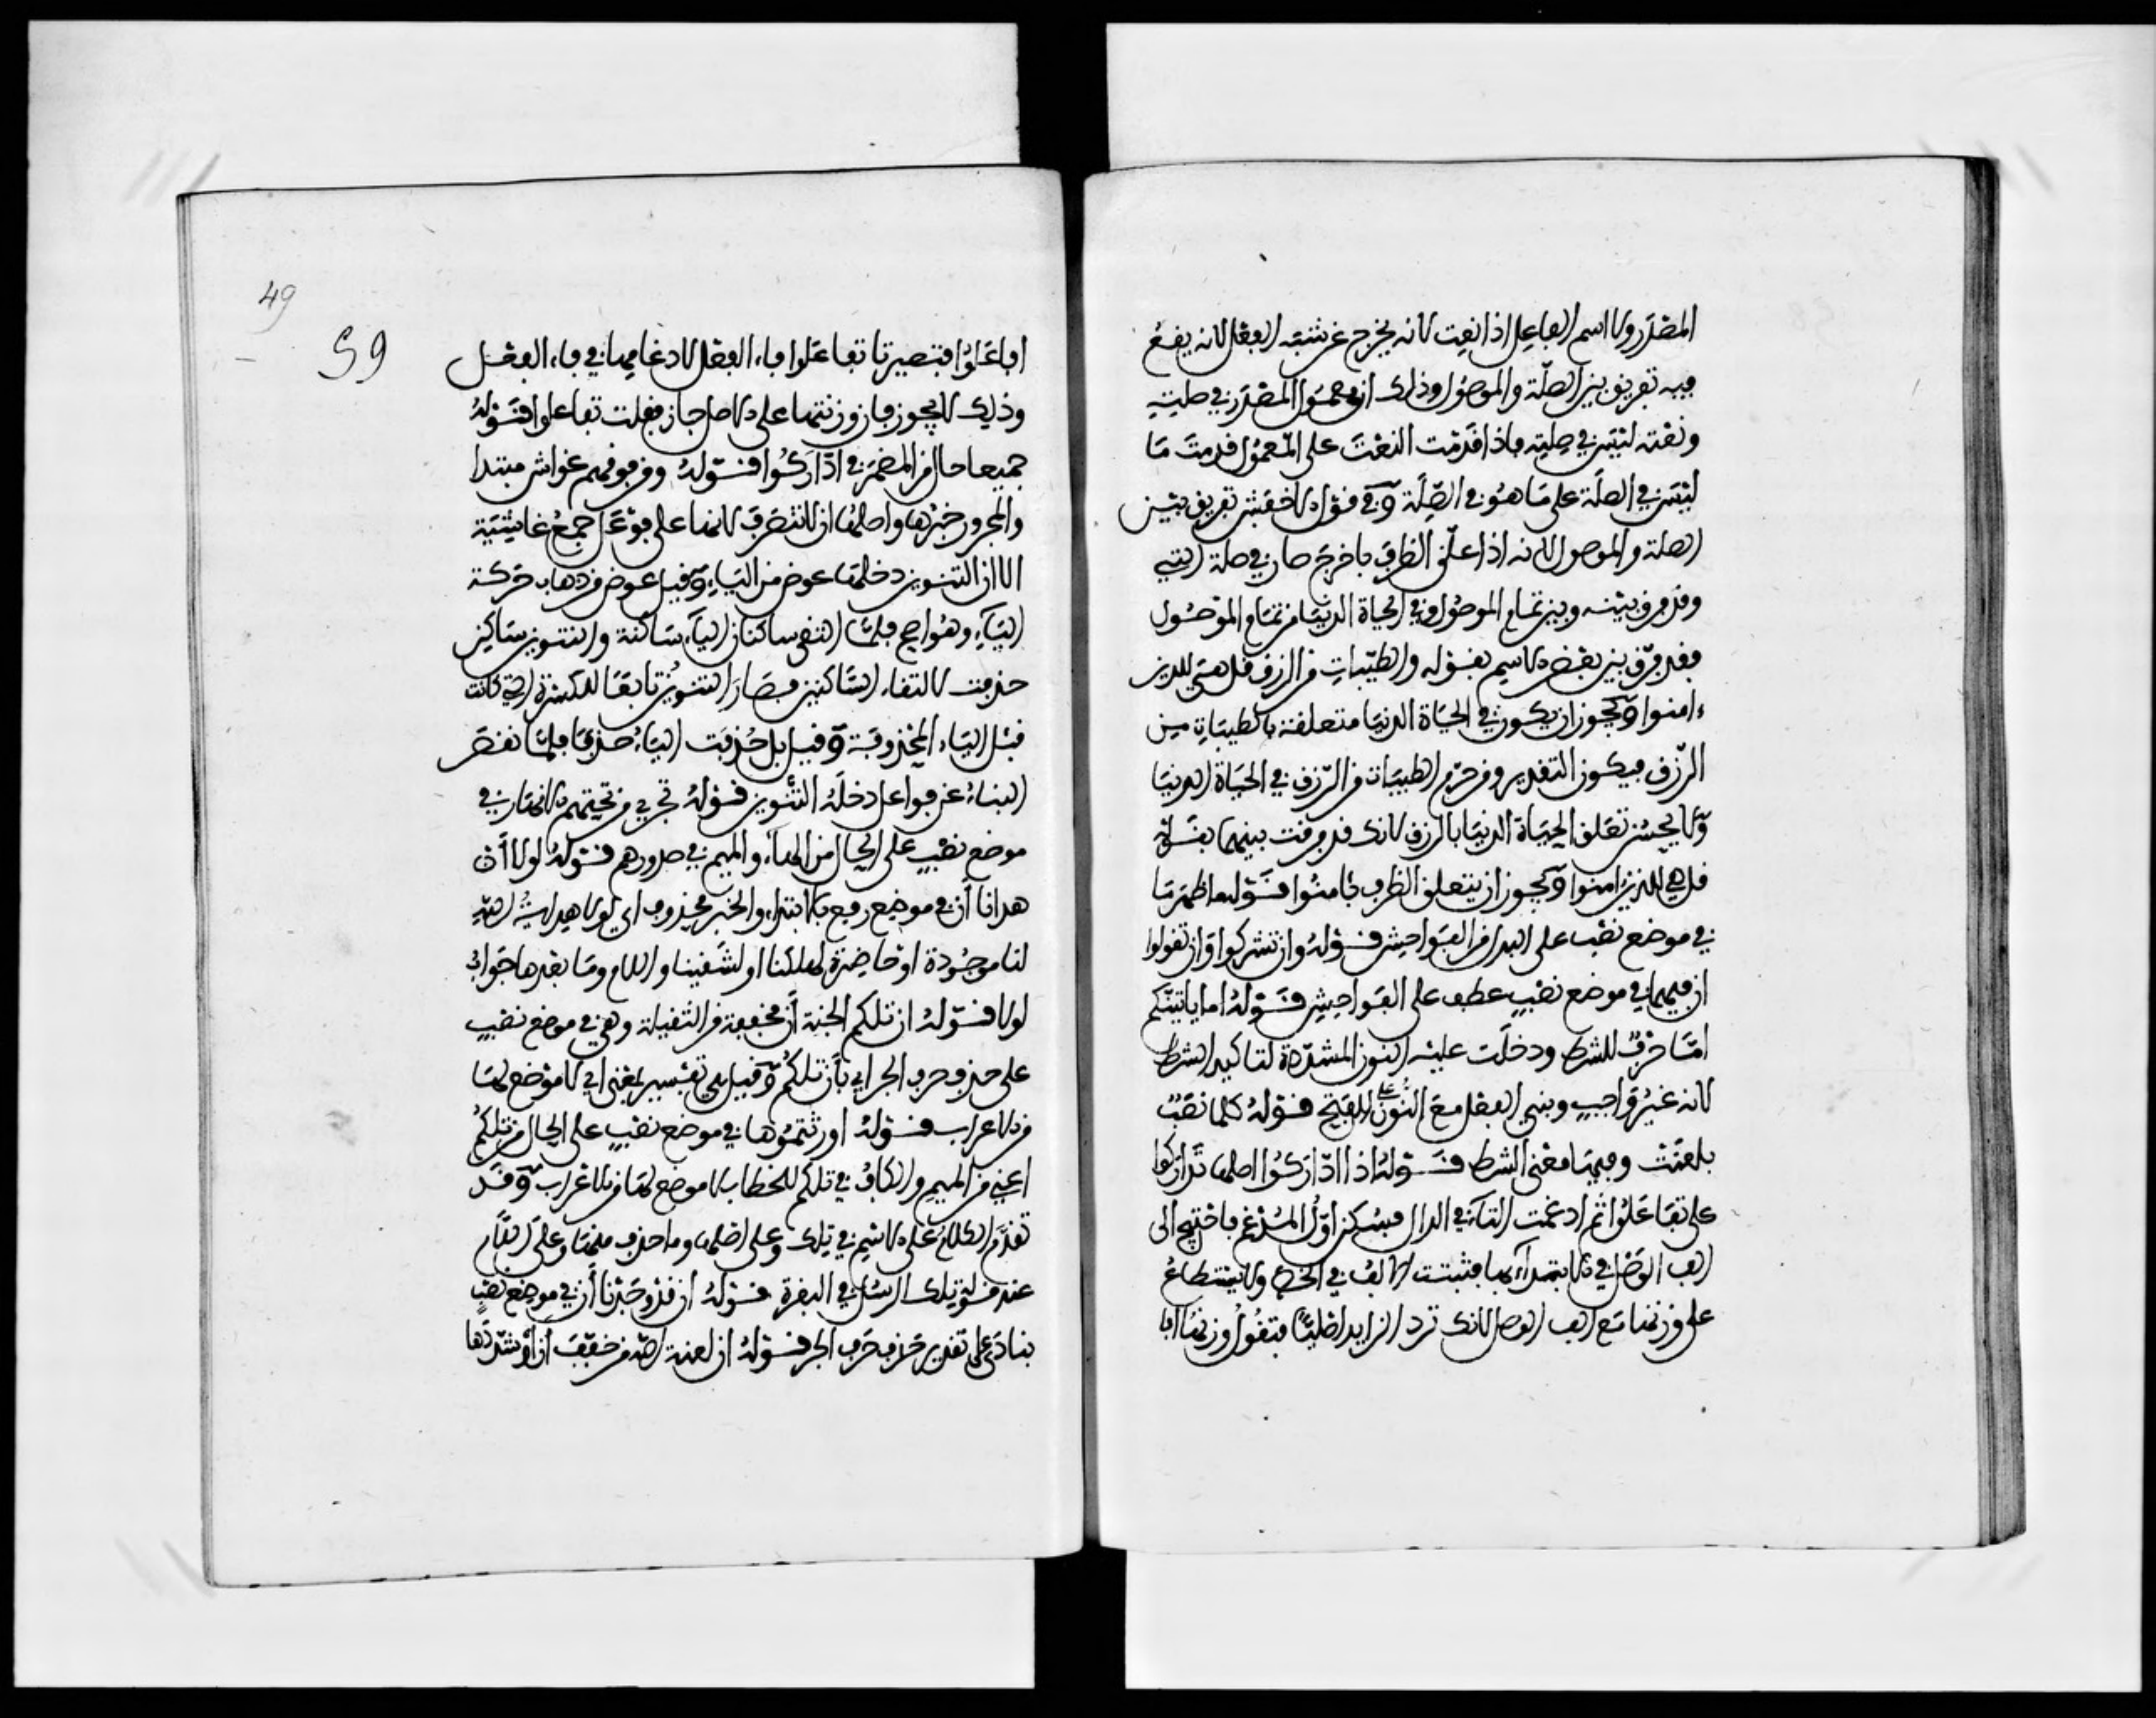 المصدر ولا اسم الفاعل اذا نعت لانه يخرج عن شبه الفعل لانه يقع
فيه تفريق بين الصلة والموصول وذلك ان معمول المصدر في صلته
ونعته ليس في صلته فاذا قدمت النعت على المعمول قدمت ما
ليس في الصلة على ما هو في الصلة وفي قول الاخفش تفريق بين
الصلة والموصول لانه اذا علق الظرف باخرج صار في صلة التي
وقد فرق بينه وبين تمام الموصول وفي الحياة الدنيا من تمام الموصول
فقد فرق بين بعض الاسم بقوله والطيبات من الرزق قل هي للذين
ءامنوا ويجوز ان يكون في الحياة الدنيا متعلقة بالطيبات من
الرزق فيكون التقدير ومن حرم الطيبات من الرزق في الحياة الدنيا
ولا يحسن تعلق الحياة الدنيا بالرزق لانك قد فرقت بينهما بقوله
قل هي للذين ءامنوا ويجوز ان يتعلق الظرف بامنوا قوله ما ظهر ما
في موضع نصب على البدل من الفواحش قوله وان تشركوا وان تقولوا
ان فيهما في موضع نصب عطف على الفواحش قوله اما ياتينكم
اما حرف للشرط ودخلت عليه النون المشددة لتاكيد الشرط
لانه غير واجب وبني الفعل مع النون على الفتح قوله كلما نصب
بلعنت وفيها معنى الشرط قوله اذا اداركوا اصلها تداركوا
على تفاعلوا ثم ادغمت التاء في الدال فسكن اول المدغم فاحتيج الى
الف الوصل في الابتداء بها فثبتت الالف في الخط ولا يستطاع
على وزنها مع الف الوصل لانك ترد الزايد اصليا فتقول وزنها افا
49
59
افاعلوا فتصير تا تفاعلوا فاء الفعل لادغامها في فاء الفعل
وذلك لا يجوز فان وزنتها على الاصل جاز فقلت تفاعلوا قوله
جميعا حال من المضمر في اداركوا قوله ومن فوقهم غواش مبتدا
والمجرور خبرها واصلها ان لا تنصرف لانها على فواعل جمع غاشية
الا ان التنوين دخلها عوض من الياء وقيل عوض من ذهاب حركة
الياء وهو اصح فلما التقى ساكنان الياء ساكنة والتنوين ساكن
حذفت لالتقاء الساكنين فصار التنوين تابعا للكسرة التي كانت
قبل الياء المحذوفة وقيل بل حذفت الياء حذفا فلما نقص
البناء عن فواعل دخله التنوين قوله تجري من تحتهم الانهار في
موضع نصب على الحال من الهاء والميم في صدورهم قوله لولا أن
هدانا أن في موضع رفع بالابتداء والخبر محذوف اي لولا هداية الله
لنا موجودة او حاضرة لهلكنا او لشقينا واللام وما بعدها جواب
لولا قوله ان تلكم الجنة أن مخففة من الثقيلة وهي في موضع نصب
على حذف حرف الجر اي بأن تلكم وقيل هي تفسير بمعنى اي لا موضع لها
من الاعراب قوله اورثتموها في موضع نصب على الحال من تلكم
اعني من الميم والكاف في تلكم للخطاب لا موضع لها من الاعراب وقد
تقدم الكلام على الاسم في تلك وعلى اصلها وما حذف منها وعلى اللام
عند قوله تلك الرسل في البقرة قوله ان قد وجدنا أن في موضع نصب
بنادى على تقدير حذف حرف الجر قوله ان لعنة الله من خفف أن او شددها